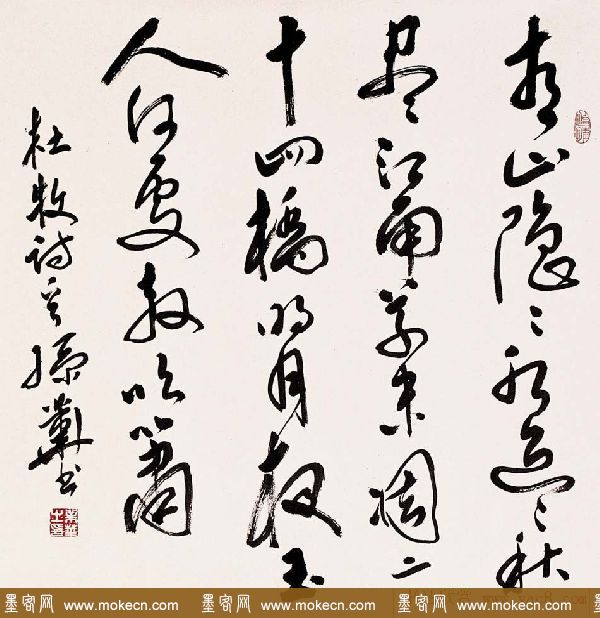 青山隐々水迢々秋
尽江南草未凋二
十四橋明月夜玉
人何處教吹簫
杜牧诗
書
墨客网 www.mokecn.com 墨客网 www.mokecn.com 墨客网 www.mokecn.com